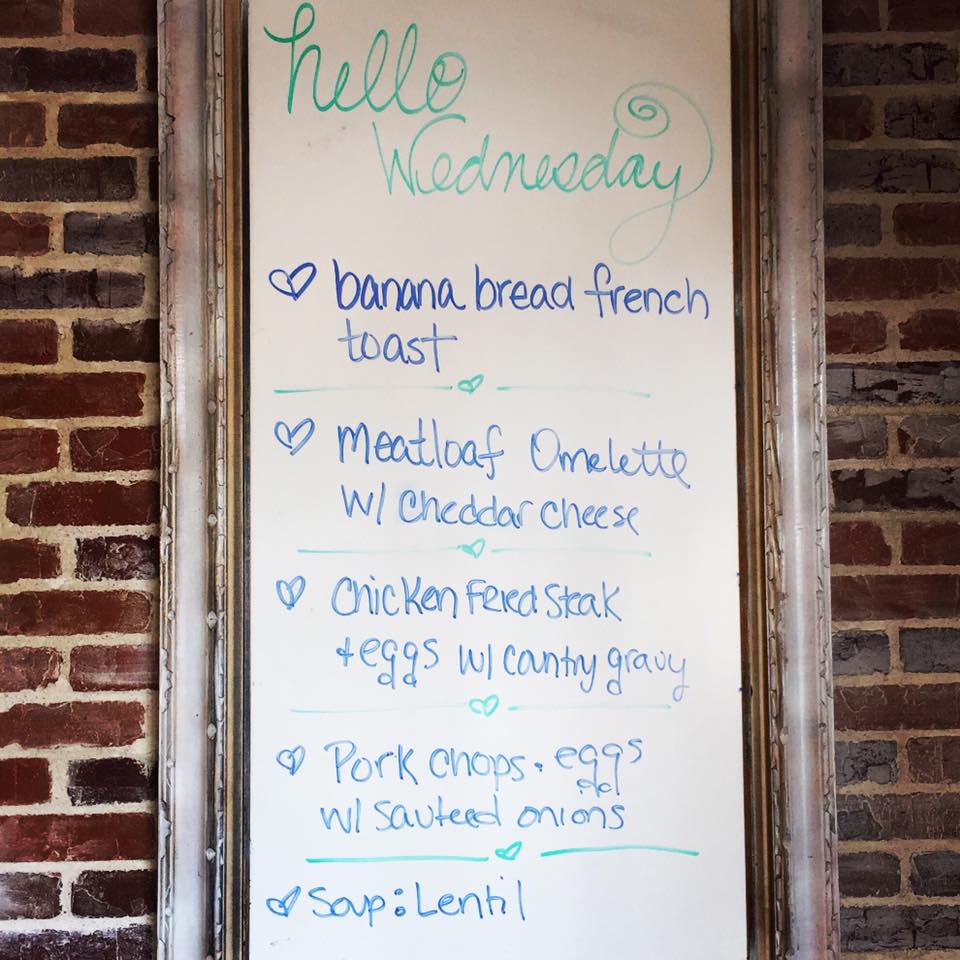 hello
Wednesday
banana bread french
toast
Meatloaf Omelette
w/ Cheddar cheese
Chicken Feied Steak
+ eggs w/ country gravy
Pork chops • eggs
w/ sauteed onions
Soup: Lentil